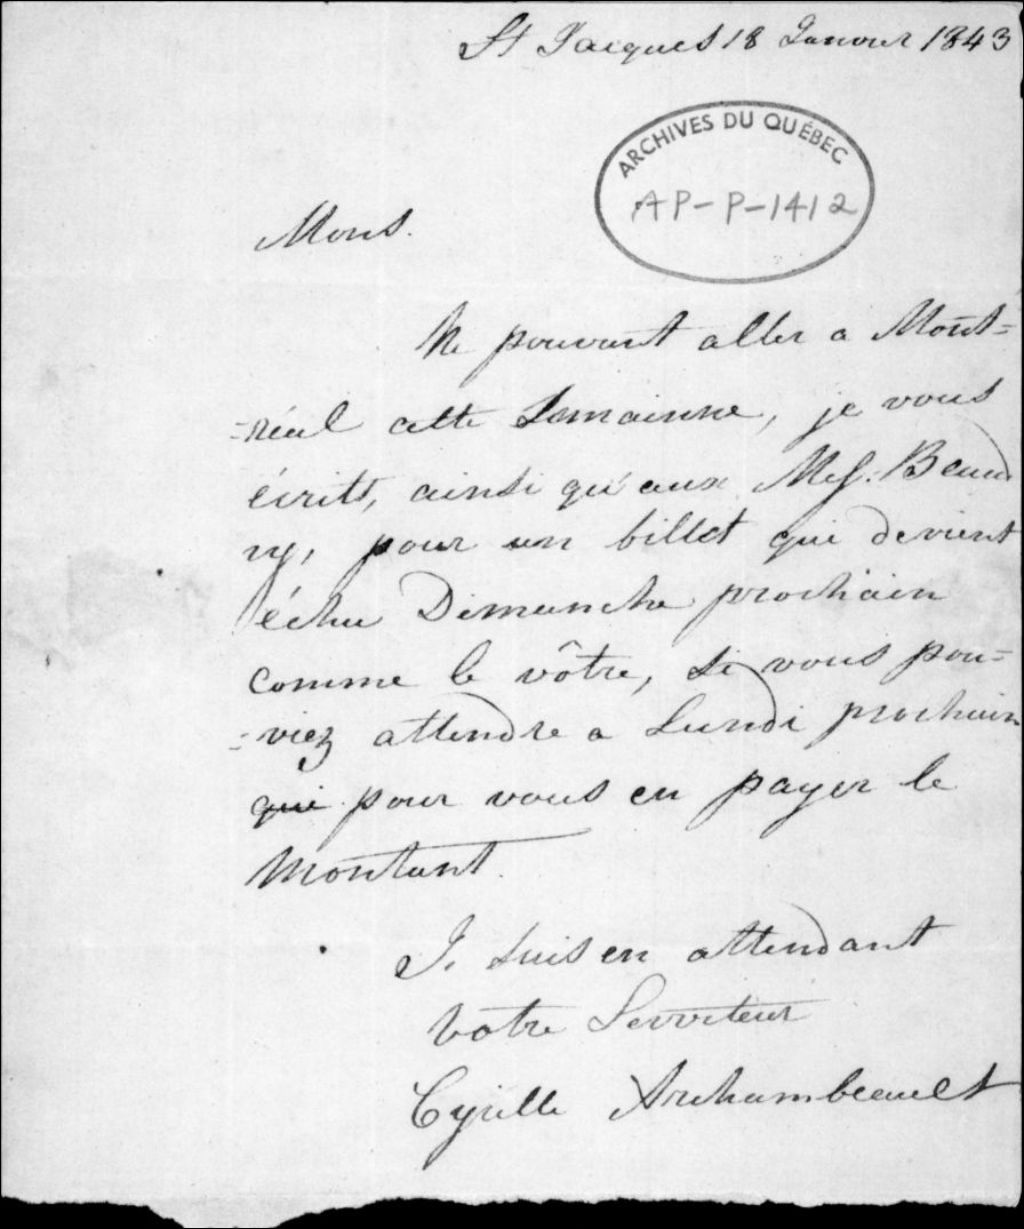 St Jacques 18 Janvier 1843
ARCHIVES DU QUÉBEC
AP-P-1412
Mons.
Ne pouvant aller a Mont=
=réal cette Semainne, je vous
écrits, ainsi qu'aux Mess. Beaud
ry, pour un billet qui devient
échu Dimanche prochain
comme le vôtre, si vous pou=
=viez attendre a Lundi prochain
qui pour vous en payer le
Montant.
Je suis en attendant
Votre Serviteur
Cyrille Archambeault